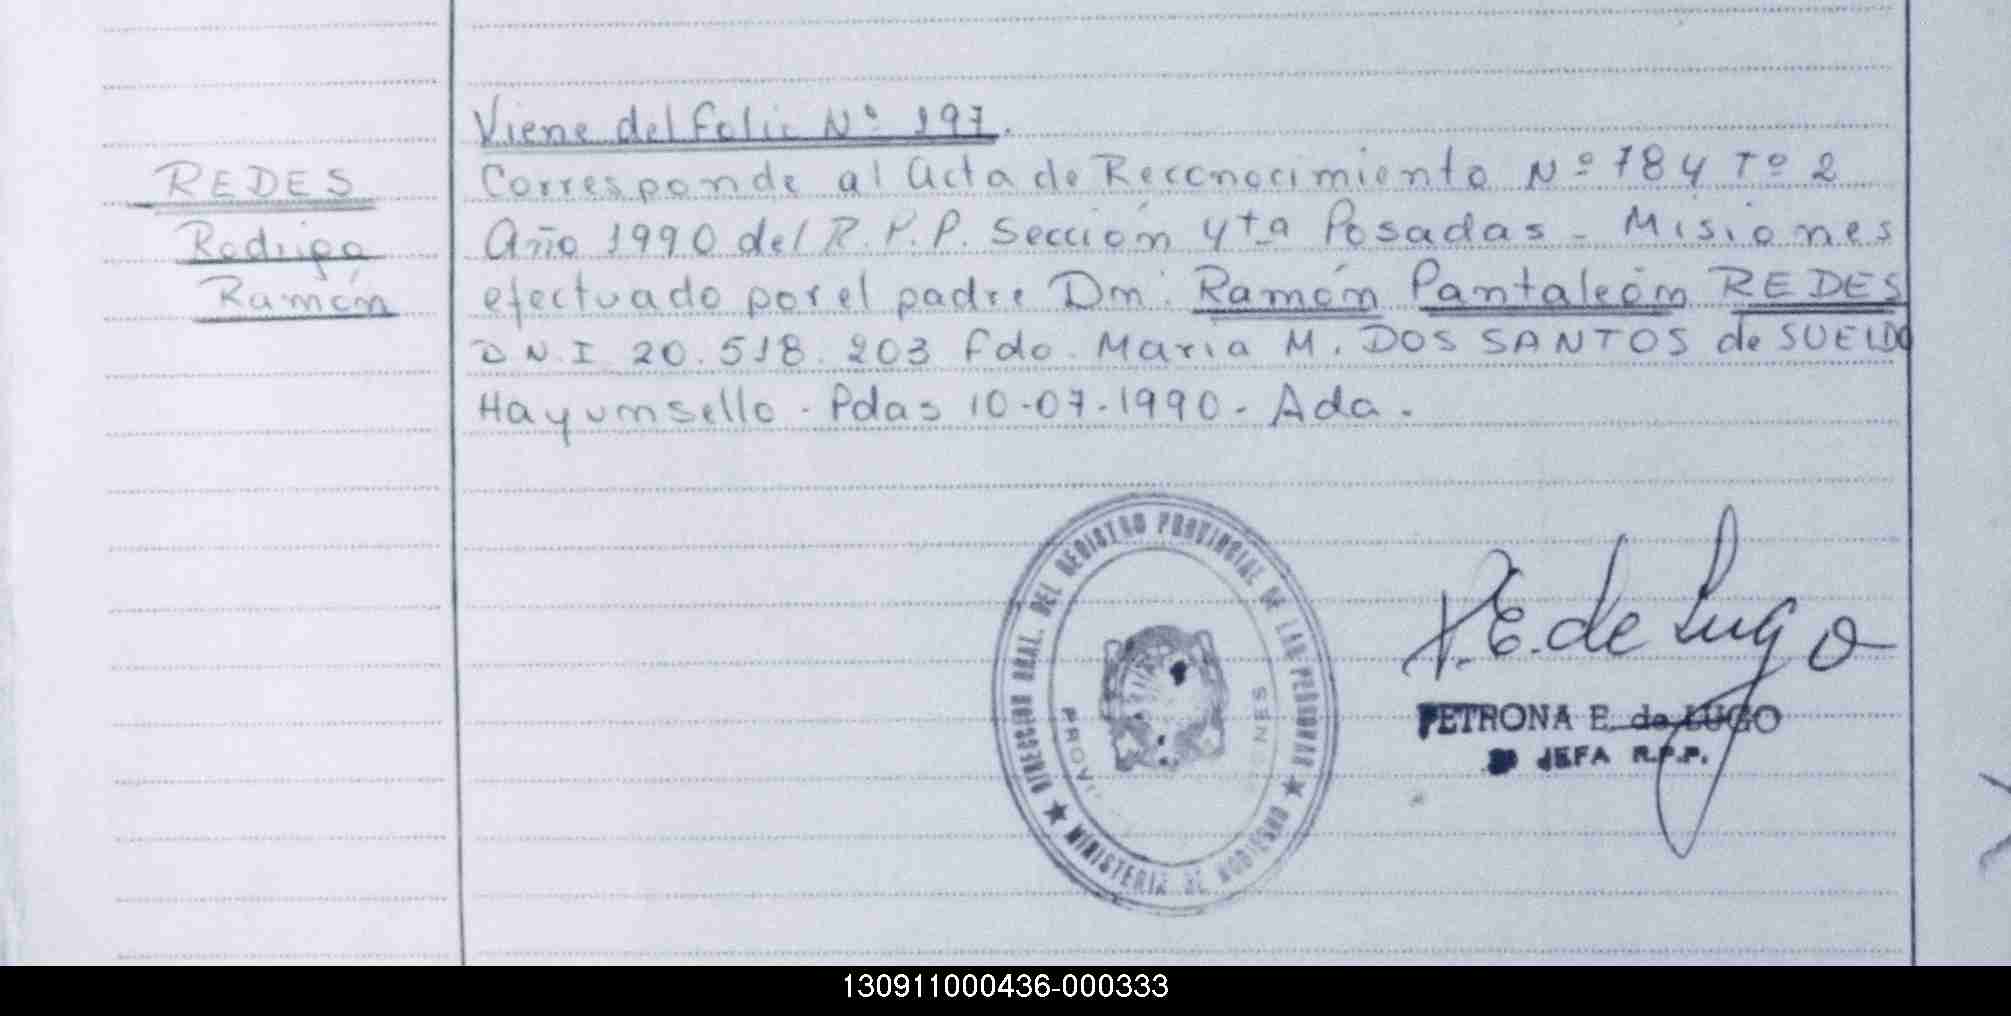 Viene del folio Nº 197.
REDES
Rodrigo
Ramón
Corresponde al Acta de Reconocimiento Nº 784 Tº 2
Año 1990 del R.P.P. Sección 4ta Posadas - Misiones
efectuado por el padre Dn. Ramón Pantaleón REDES
D.N.I 20.518.203 fdo. Maria M. DOS SANTOS de SUELDO
Hay um sello - Pdas 10-07-1990 - Ada.
DIRECCION GRAL. DEL REGISTRO PROVINCIAL DE LAS PERSONAS
MINISTERIO DE GOBIERNO
P.E. de Lugo
PETRONA E. de LUGO
JEFA R.P.P.
130911000436-000333